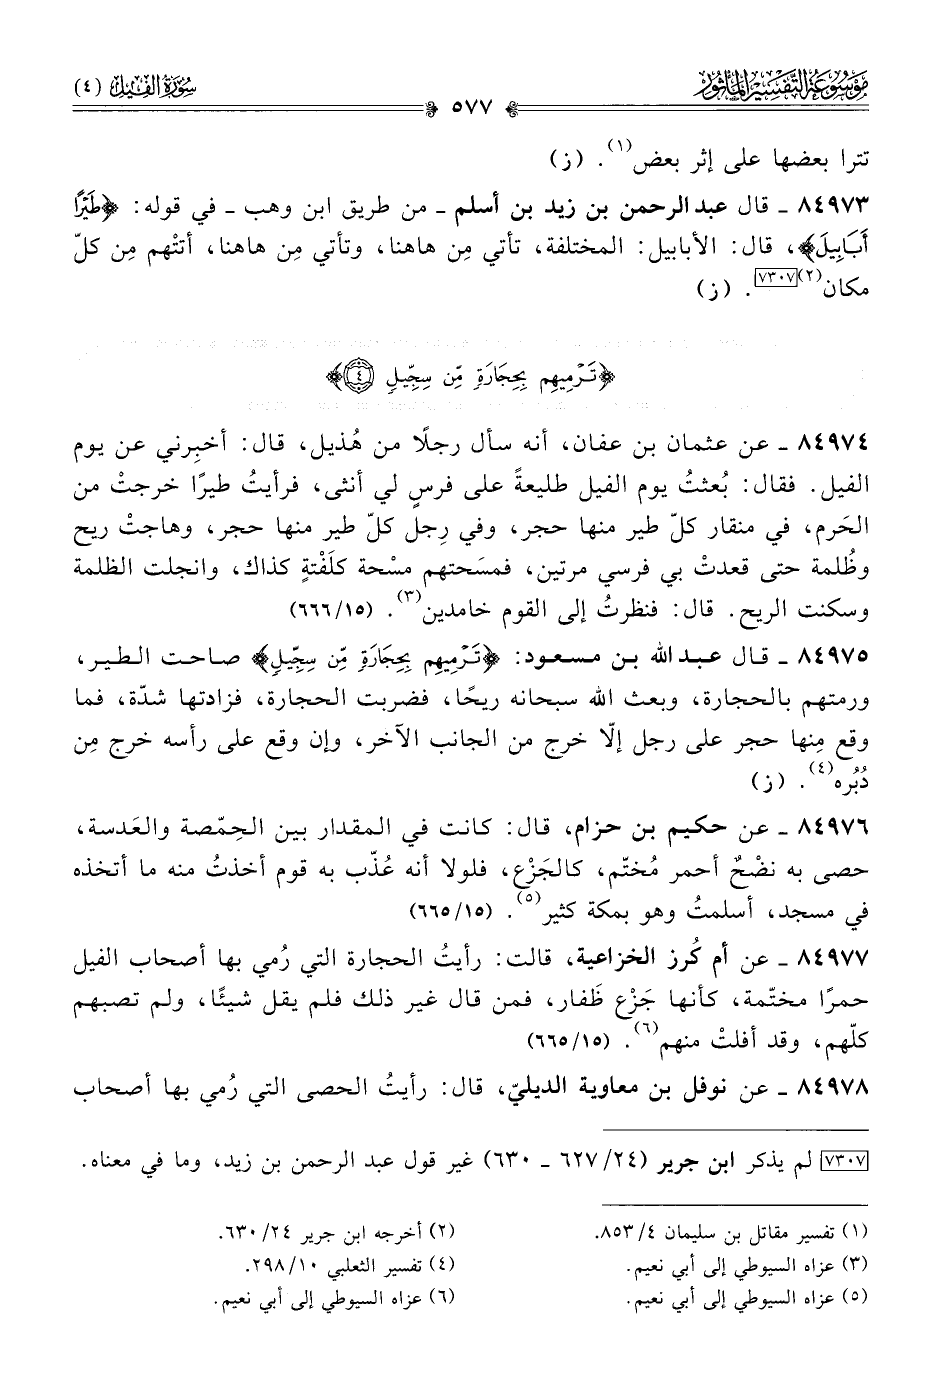 مَوْسُوعَة التَّفْسِير المَأْثُور
سُورَة الفِيل (٤)
٥٧٧
تترا بعضها على إثر بعض(١). (ز)
٨٤٩٧٣ ـ قال عبد الرحمن بن زيد بن أسلم ـ من طريق ابن وهب ـ في قوله: ﴿طَيْرًا
أَبَابِيلَ﴾، قال: الأبابيل: المختلفة، تأتي مِن هاهنا، وتأتي مِن هاهنا، أتتْهم مِن كلّ
مكان(٢)[٧٣٠٧]. (ز)
﴿تَرْمِيهِم بِحِجَارَةٍ مِّن سِجِّيلٍ ٤﴾
٨٤٩٧٤ ـ عن عثمان بن عفان، أنه سأل رجلًا من هُذيل، قال: أخبِرني عن يوم
الفيل. فقال: بُعثتُ يوم الفيل طليعةً على فرسٍ لي أنثى، فرأيتُ طيرًا خرجتْ من
الحَرم، في منقار كلّ طير منها حجر، وفي رِجل كلّ طير منها حجر، وهاجتْ ريح
وظُلمة حتى قعدتْ بي فرسي مرتين، فمسَحتهم مسْحة كلَفْتةٍ كذاك، وانجلت الظلمة
وسكنت الريح. قال: فنظرتُ إلى القوم خامدين(٣). (٦٦٦/١٥)
٨٤٩٧٥ ـ قال عبد الله بن مسعود: ﴿تَرْمِيهِم بِحِجَارَةٍ مِّن سِجِّيلٍ﴾ صاحت الطير،
ورمتهم بالحجارة، وبعث الله سبحانه ريحًا، فضربت الحجارة، فزادتها شدّة، فما
وقع مِنها حجر على رجل إلّا خرج من الجانب الآخر، وإن وقع على رأسه خرج مِن
دُبُره(٤). (ز)
٨٤٩٧٦ ـ عن حكيم بن حزام، قال: كانت في المقدار بين الحِمّصة والعَدسة،
حصى به نضْحٌ أحمر مُختّم، كالجَزْع، فلولا أنه عُذّب به قوم أخذتُ منه ما أتخذه
في مسجد، أسلمتُ وهو بمكة كثير(٥). (٦٦٥/١٥)
٨٤٩٧٧ ـ عن أم كُرز الخزاعية، قالت: رأيتُ الحجارة التي رُمي بها أصحاب الفيل
حمرًا مختّمة، كأنها جَزْع ظَفار، فمن قال غير ذلك فلم يقل شيئًا، ولم تصبهم
كلّهم، وقد أفلتْ منهم(٦). (٦٦٥/١٥)
٨٤٩٧٨ ـ عن نوفل بن معاوية الديليّ، قال: رأيتُ الحصى التي رُمي بها أصحاب
[٧٣٠٧] لم يذكر ابن جرير (٢٤/ ٦٢٧ ـ ٦٣٠) غير قول عبد الرحمن بن زيد، وما في معناه.
(١) تفسير مقاتل بن سليمان ٤/ ٨٥٣.
(٢) أخرجه ابن جرير ٢٤/ ٦٣٠.
(٣) عزاه السيوطي إلى أبي نعيم.
(٤) تفسير الثعلبي ١٠/ ٢٩٨.
(٥) عزاه السيوطي إلى أبي نعيم.
(٦) عزاه السيوطي إلى أبي نعيم.